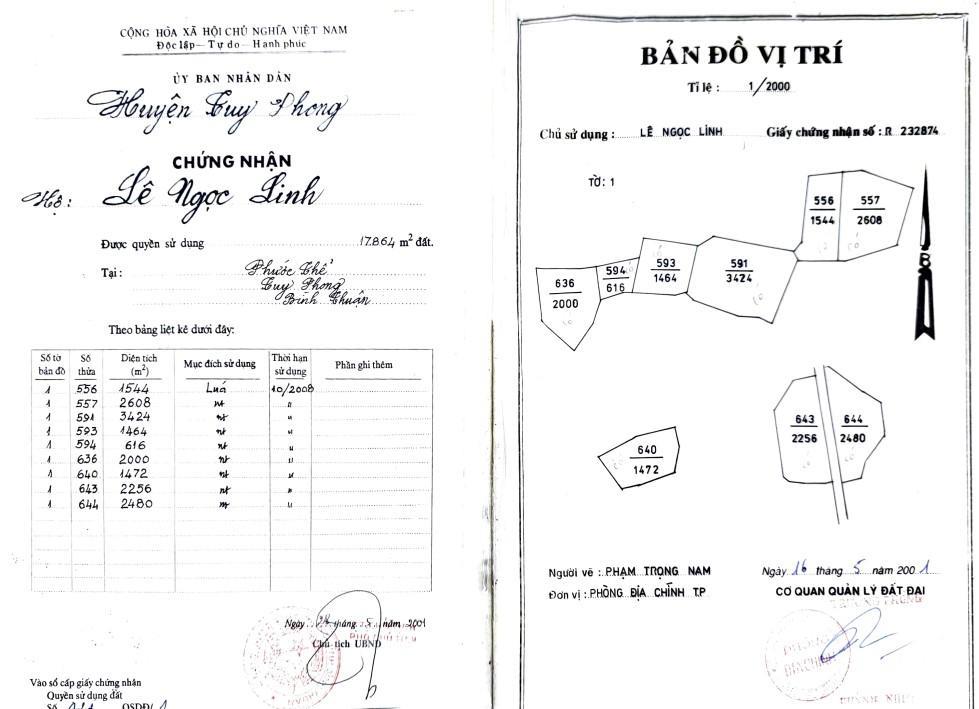 CỘNG HÒA XÃ HỘI CHỦ NGHĨA VIỆT NAM
Độc lập – Tự do – Hạnh phúc
ỦY BAN NHÂN DÂN
Huyện Tuy Phong
CHỨNG NHẬN
Hộ: Lê Ngọc Linh
Được quyền sử dụng 17.864 m² đất.
Tại: Phước Thể
Tuy Phong
Bình Thuận
Theo bảng liệt kê dưới đây:
Số tờ bản đồ Số thửa Diện tích (m²) Mục đích sử dụng Thời hạn sử dụng Phần ghi thêm
1 556 1544 Luá 10/2008
1 557 2608 nt "
1 591 3424 nt "
1 593 1464 nt "
1 594 616 nt "
1 636 2000 nt "
1 640 1472 nt "
1 643 2256 nt "
1 644 2480 nt "
Ngày tháng 5 năm 2001
Chủ tịch UBND
Vào sổ cấp giấy chứng nhận
Quyền sử dụng đất
Số QSDĐ/1
BẢN ĐỒ VỊ TRÍ
Tỉ lệ: 1/2000
Chủ sử dụng: LÊ NGỌC LINH Giấy chứng nhận số: R 232874
TỜ: 1
556
1544
557
2608
B
636
2000
594
616
593
1464
591
3424
643
2256
644
2480
640
1472
Người vẽ: PHẠM TRỌNG NAM
Đơn vị: PHÒNG ĐỊA CHÍNH T.P
Ngày 16 tháng 5 năm 2001
CƠ QUAN QUẢN LÝ ĐẤT ĐAI